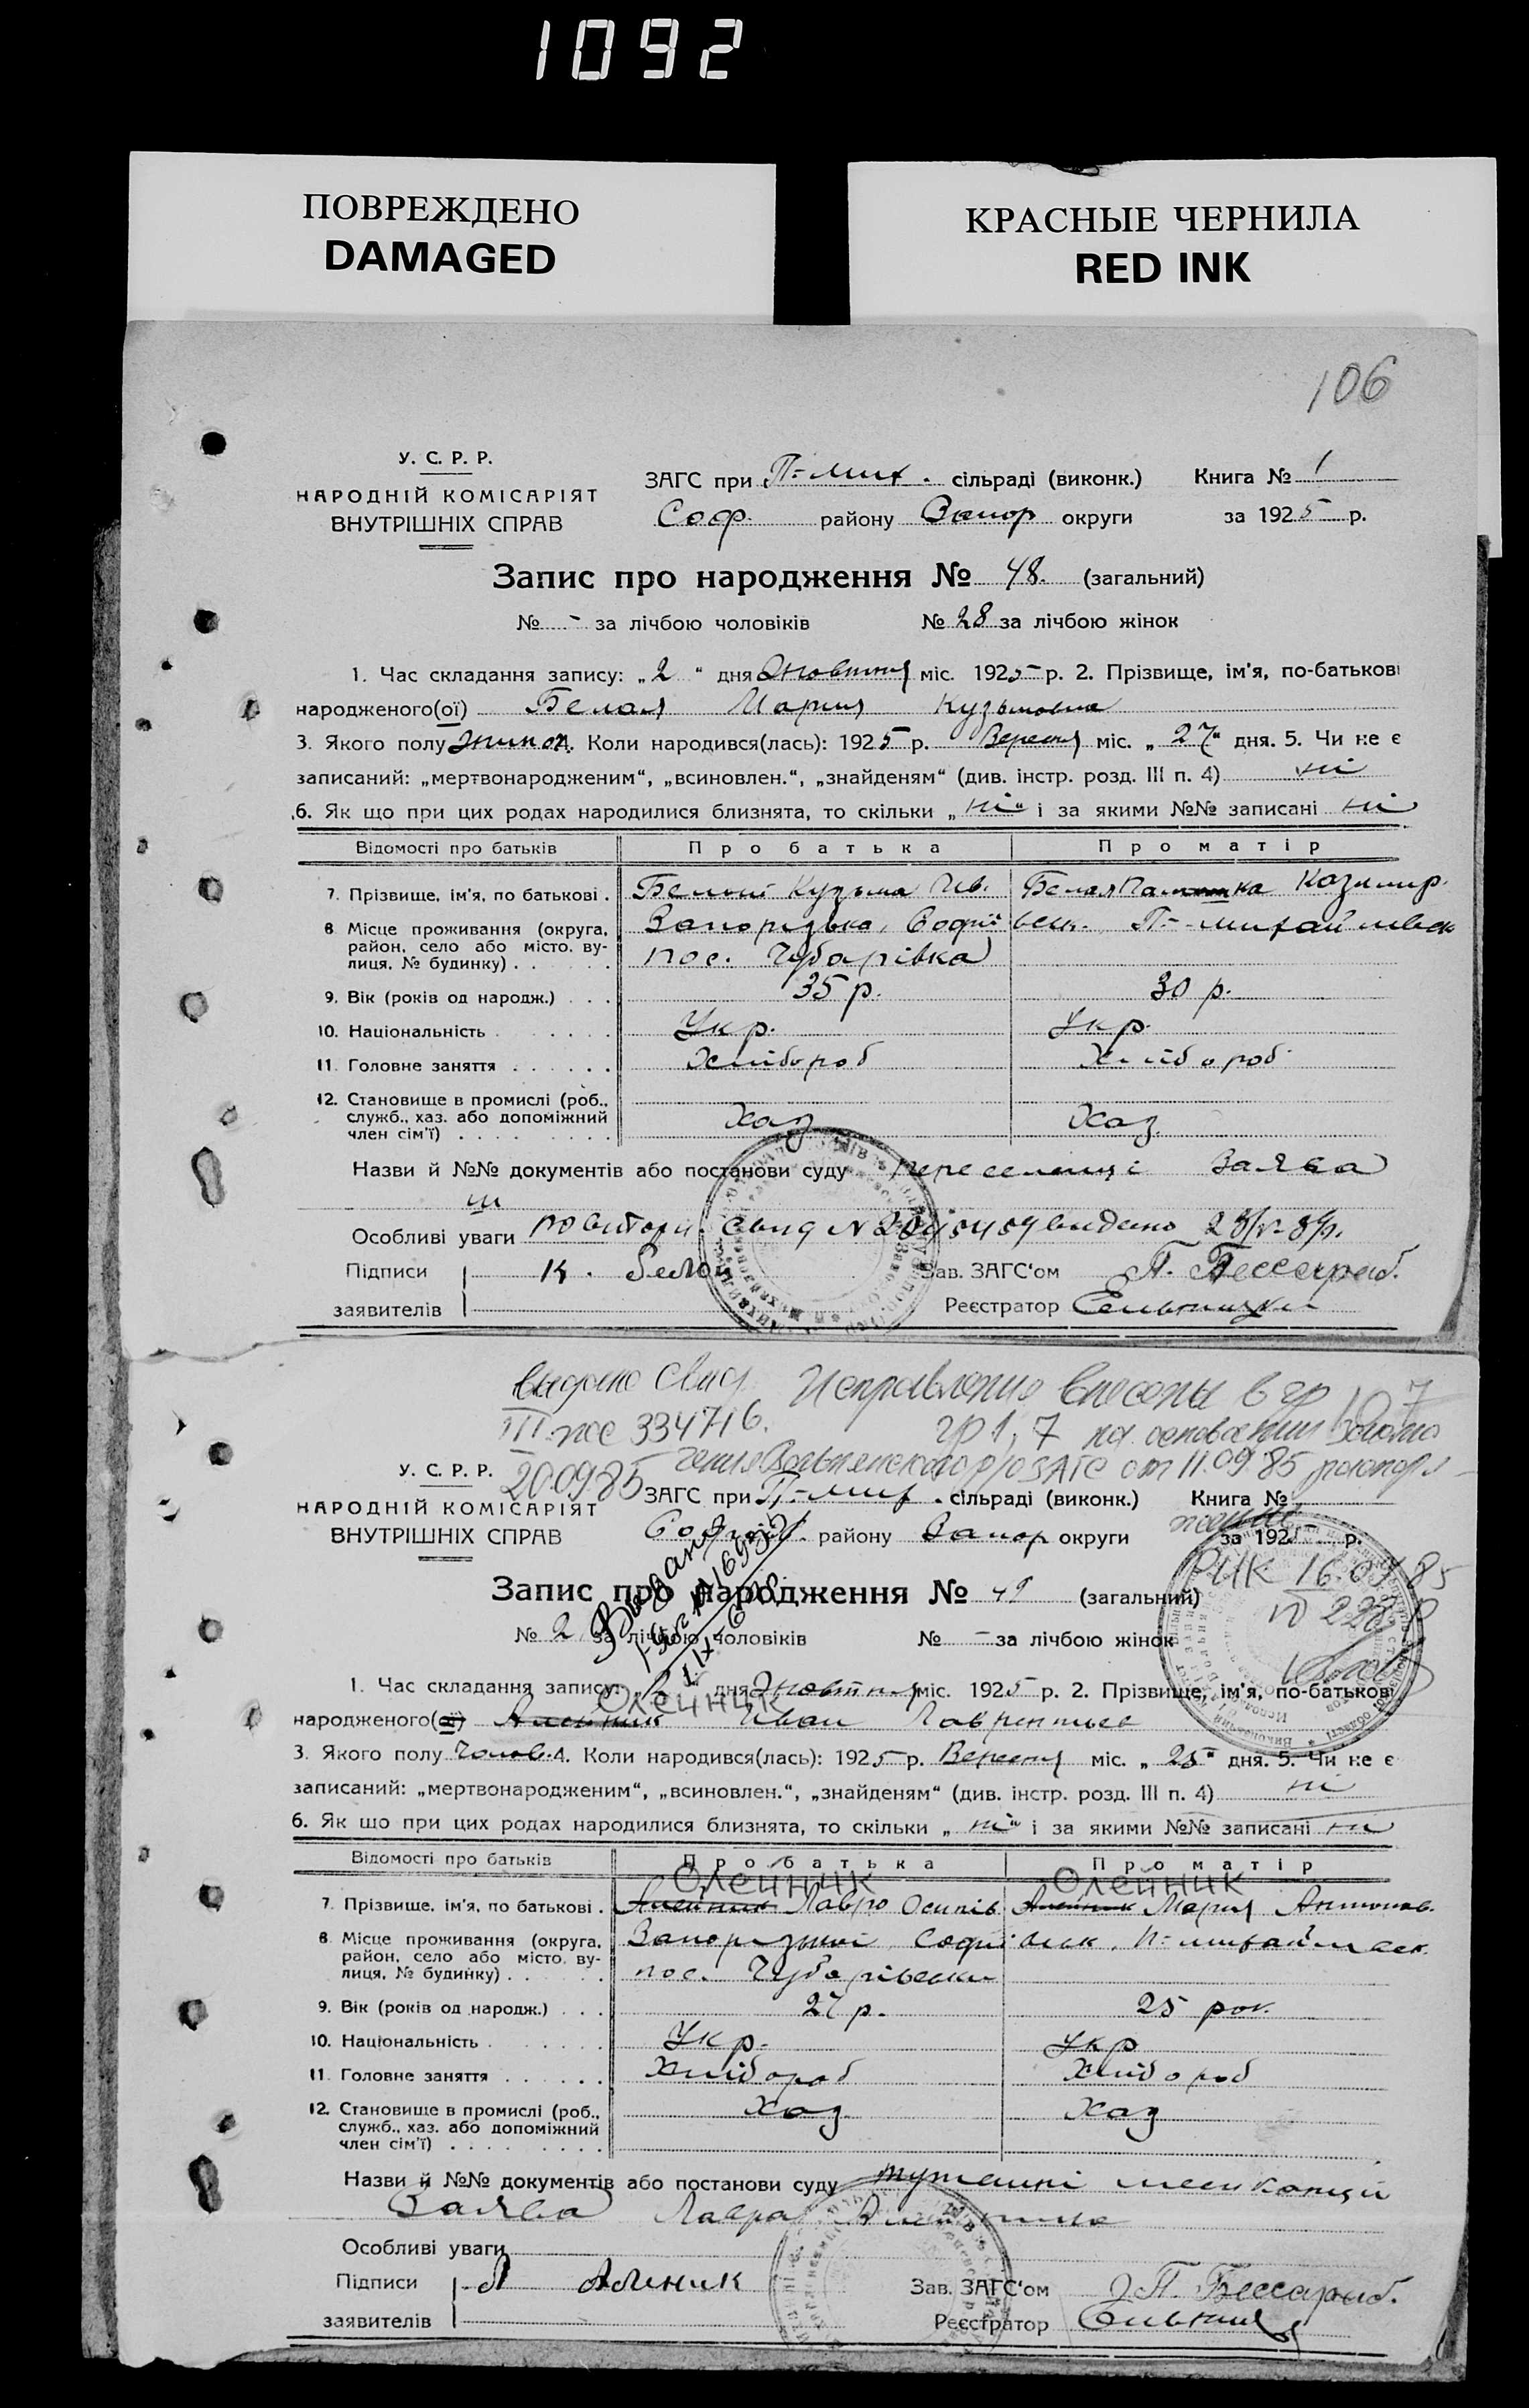 1092
ПОВРЕЖДЕНО
DAMAGED
КРАСНЫЕ ЧЕРНИЛА
RED INK
106
У. С. Р. Р.
НАРОДНІЙ КОМІСАРІЯТ
ВНУТРІШНІХ СПРАВ
ЗАГС при П-Мих. сільраді (виконк.) Книга № 1
Соф. району Запор округи за 1925 р.
Запис про народження № 48. (загальний)
№ - за лічбою чоловіків № 28 за лічбою жінок
1. Час складання запису: „2“ дня Жовтня міс. 1925 р. 2. Прізвище, ім'я, по-батькові
народженого(ої) Белая Мария Кузьмовна
3. Якого полу жіноч. 4. Коли народився(лась): 1925 р. Вересня міс. „27“ дня. 5. Чи не є
записаний: „мертвонародженим“, „всиновлен.“, „знайденям“ (див. інстр. розд. III п. 4) ні
6. Як що при цих родах народилися близнята, то скільки „ні“ і за якими №№ записані ні
Відомості про батьків Про батька Про матір
7. Прізвище, ім'я, по батькові . Белий Кузьма Ив. Белая Казимир.
8 Місце проживання (округа, район, село або місто, вулиця, № будинку) . . Запорізька, Софіївськ. П-Михайлівськ
пос. Чубарівка
9. Вік (років од народж.) . . . 35 р. 30 р.
10. Національність . . . . . Укр. Укр.
11. Головне заняття . . . . . . Хлібороб Хлібороб
12. Становище в промислі (роб., служб., хаз. або допоміжний член сім'ї) . . . . . . . . Хаз Хаз.
Назви й №№ документів або постанови суду переселенці Заява
Особливі уваги повторн. свид № видано
Підписи К. Белой Зав. ЗАГС'ом П. Бессараб.
заявителів Реєстратор
выдано Свид. Исправления внесены в гр
III-жс 334716. гр 1, 7 на основании Заключения
20.09.85 Вольнянского р/о ЗАГС от 11.09.85
У. С. Р. Р.
НАРОДНІЙ КОМІСАРІЯТ
ВНУТРІШНІХ СПРАВ
ЗАГС при П-Мих. сільраді (виконк.) Книга №
Софіїв. району Запор округи за 1925 р.
РИК 16.09.85
Запис про народження № 49 (загальний)
№ 2 за лічбою чоловіків № - за лічбою жінок
Выдан
1. Час складання запису: дня Жовтня міс. 1925 р. 2. Прізвище, ім'я, по-батькові
Олейник
народженого(ої) Алейник Иван Лаврентьев
3. Якого полу Чолов. 4. Коли народився(лась): 1925 р. Вересня міс. „25“ дня. 5. Чи не є
записаний: „мертвонародженим“, „всиновлен.“, „знайденям“ (див. інстр. розд. III п. 4) ні
6. Як що при цих родах народилися близнята, то скільки „ні“ і за якими №№ записані ні
Відомості про батьків Про батька Про матір
Олейник Олейник
7. Прізвище, ім'я, по батькові . Алейник Лавро Осипів. Алейник Мария Антонов.
8 Місце проживання (округа, район, село або місто, вулиця, № будинку) . . Запорізької Софіївськ. П-Михайлівськ.
пос. Чубарівськи
9. Вік (років од народж.) . . . 27 р. 25 рок.
10. Національність . . . . . Укр. Укр
11. Головне заняття . . . . . . Хлібороб Хлібороб
12. Становище в промислі (роб., служб., хаз. або допоміжний член сім'ї) . . . . . . . . Хаз. Хаз
Назви й №№ документів або постанови суду тутешні мешканці
Заява Лавра Алейника
Особливі уваги
Підписи Л Алиник Зав. ЗАГС'ом П. Бессараб.
заявителів Реєстратор